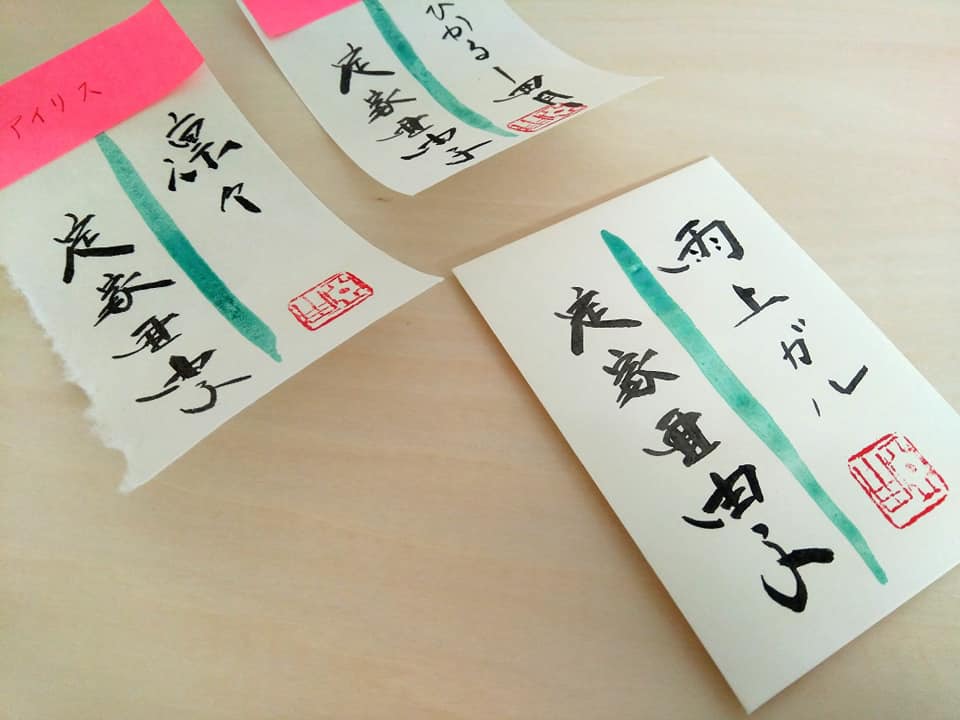 アイリス
凛々
定家亜由子
ひかる
定家亜由子
雨上ガル
定家亜由子